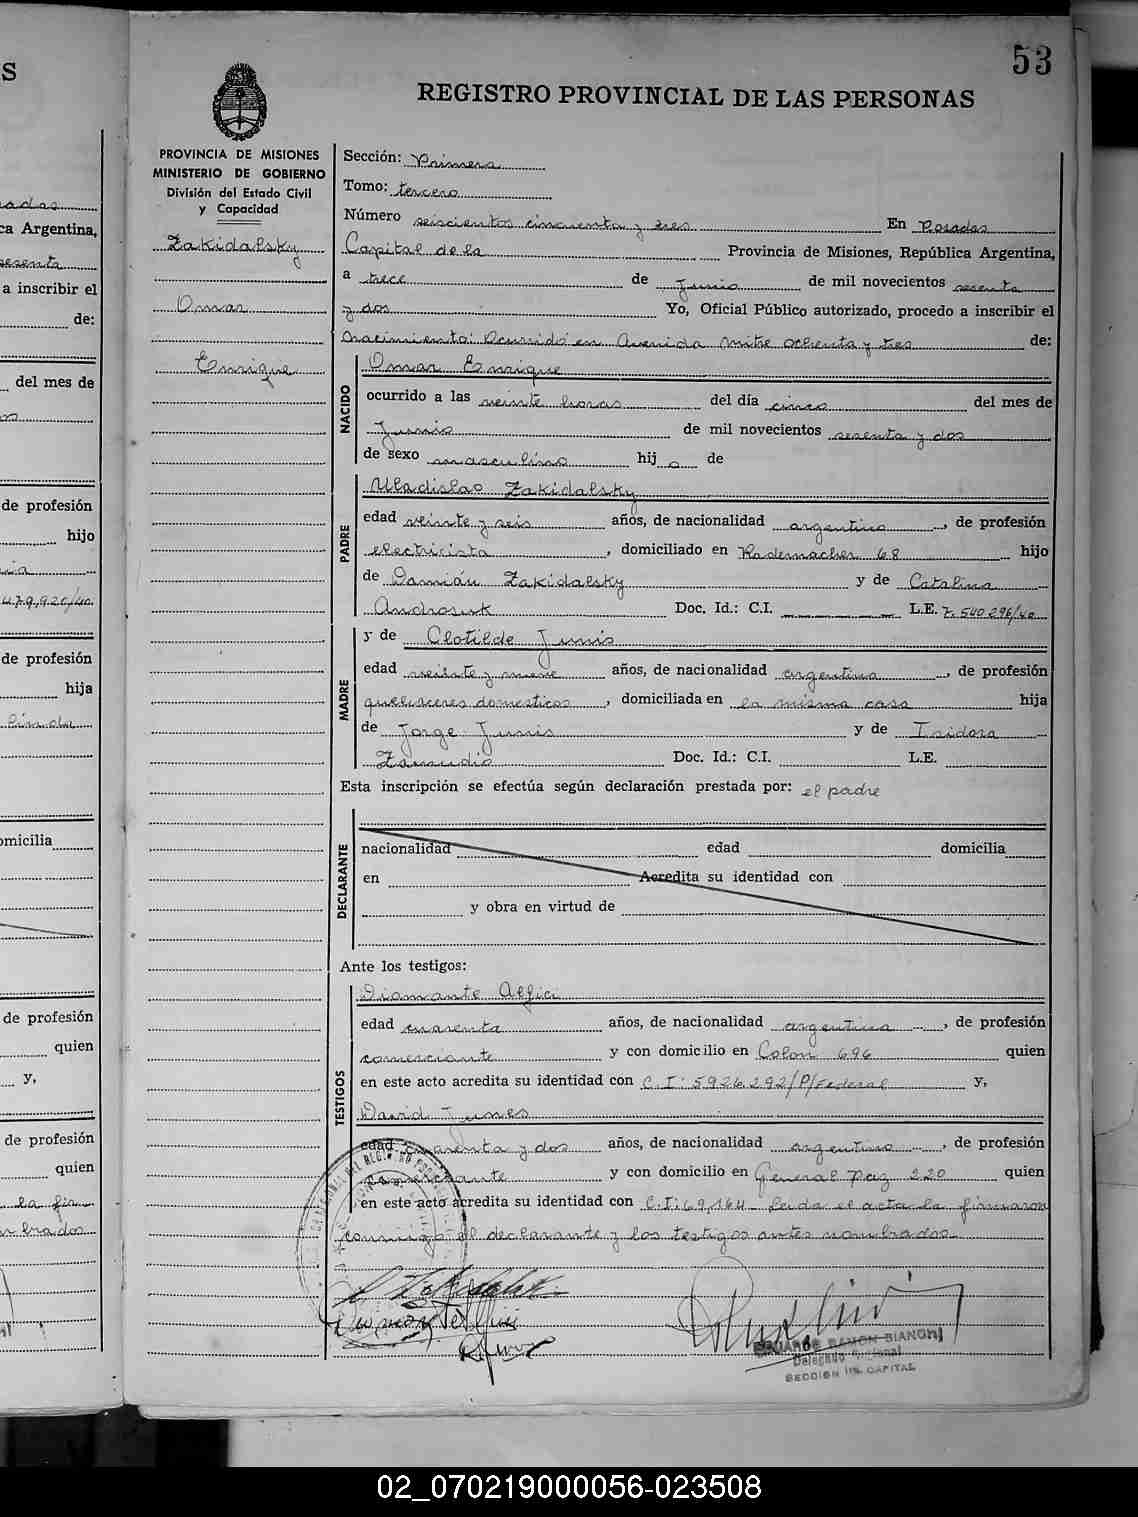 53
REGISTRO PROVINCIAL DE LAS PERSONAS
PROVINCIA DE MISIONES
MINISTERIO DE GOBIERNO
División del Estado Civil
y Capacidad
Zakidalsky
Omar
Enrique
Sección: Primera
Tomo: tercero
Número seiscientos cincuenta y tres En Posadas
Capital de la Provincia de Misiones, República Argentina,
a trece de Junio de mil novecientos sesenta
y dos Yo, Oficial Público autorizado, procedo a inscribir el
nacimiento: Ocurrido en Avenida Mitre ochenta y tres de:
NACIDO
Omar Enrique
ocurrido a las veinte horas del día cinco del mes de
Junio de mil novecientos sesenta y dos
de sexo masculino hijo de
PADRE
Uladislao Zakidalsky
edad veinte y seis años, de nacionalidad argentino, de profesión
electricista, domiciliado en Rademacher 68 hijo
de Damián Zakidalsky y de Catalina
Androsiuk Doc. Id.: C.I. L.E. 7.540.296/40
MADRE
y de Clotilde Junis
edad veinte y nueve años, de nacionalidad argentina, de profesión
quehaceres domesticos, domiciliada en la misma casa hija
de Jorge Junis y de Isidora
Zamudio Doc. Id.: C.I. L.E.
Esta inscripción se efectúa según declaración prestada por: el padre
DECLARANTE
nacionalidad edad domicilia
en Acredita su identidad con
y obra en virtud de
Ante los testigos:
TESTIGOS
Diamante Alfici
edad cuarenta años, de nacionalidad argentina, de profesión
comerciante y con domicilio en Colon 696 quien
en este acto acredita su identidad con C.I: 5926.292/P/Federal y,
David Junes
edad cuarenta y dos años, de nacionalidad argentino, de profesión
comerciante y con domicilio en General Paz 220 quien
en este acto acredita su identidad con C.I: 69,164 Leída el acta la firmaron
conmigo el declarante y los testigos antes nombrados
EDUARDO RAMON BIANCHI
Delegado Seccional
SECCION 1ra. CAPITAL
02_070219000056-023508